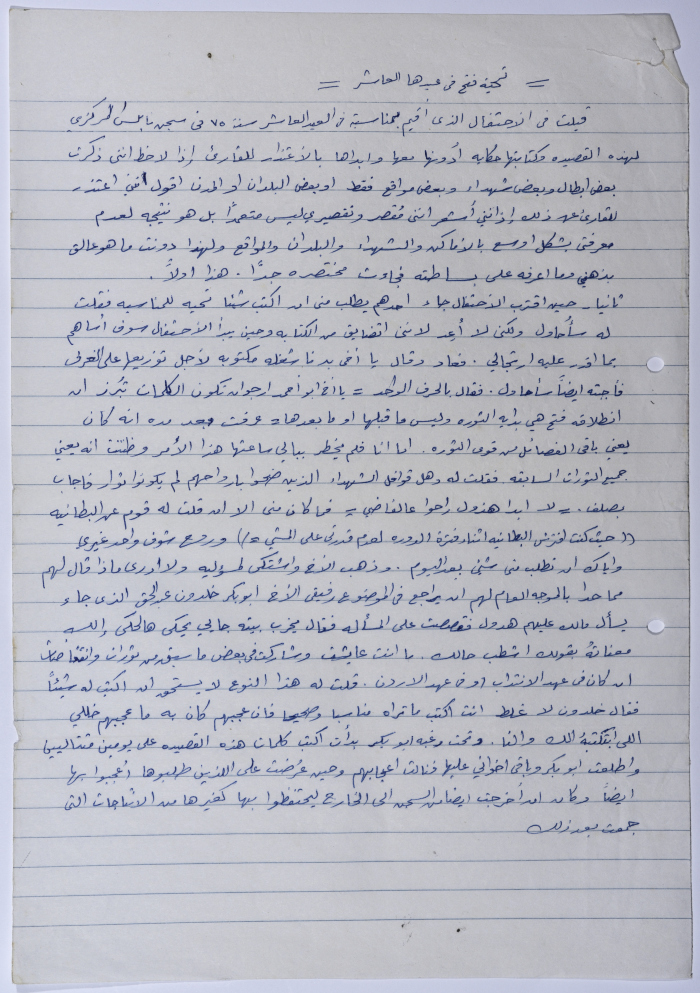 = تحية فتح في عيدها العاشر =
قيلت في الاحتفال الذي أقيم بالمناسبة في العيد العاشر سنة ٧٥ في سجن نابلس المركزي
لهذه القصيده وكتابتها حكايه أدونها معها وابدأها بالأعتذار للقارئ إذا لاحظ انني ذكرت
بعض ابطال وبعض شهداء وبعض مواقع فقط او بعض البلدان او المدن اقول انني اعتذر
للقارئ عن ذلك إذ انني أشعر انني مُقصر وتقصيري ليس متعمداً بل هو نتيجه لعدم
معرفتي بشكل اوسع بالأماكن والشهداء والبلدان والمواقع ولهذا دونت ما هو عالق
بذهني وما اعرفه على بساطته فجاءت مختصره جداً . هذا اولاً .
ثانيا . حين اقترب الأحتفال جاء احدهم يطلب مني ان اكتب شيئا تحيه للمناسبه فقلت
له سأحاول ولكني لا أعِد لانني اتضايق من الكتابه وحين يبدأ الأحتفال سوف أساهم
بما اقدر عليه ارتجالي . فعاد وقال يا أخي بدنا شغله مكتوبه لأجل توزيعها على الغرف
فأجبته ايضاً سأحاول . فقال بالحرف الواحد = يا اخ ابو أحمد ارجو ان تكون الكلمات تُبرز ان
انطلاقة فتح هي بدايه الثوره وليس ما قبلها او ما بعدها = عرفت بعد مده انه كان
يعني باقي الفصائل من قوى الثوره . اما انا فلم يخطر ببالي ساعتها هذا الأمر وظننت انه يعني
جميع الثورات السابقه . فقلت له وهل قوافل الشهداء الذين ضحوا بارواحهم لم يكونوا ثوار فأجاب
بصلف . = لا ابدا هذول راحوا عالفاضي = فما كان مني الا ان قلت له قوم عن البطانيه
(( حيث كنت افترش البطانيه اثناء فترة الدوره لعدم قدرتي على المشي )) وروح شوف واحد غيري
واياك ان تطلب مني شئ بعد اليوم . وذهب الأخ واشتكى لمسؤليه ولا ادري ماذا قال لهم
مما حدا بالموجه العام لهم ان يراجع في الموضوع رفيقي الأخ ابو بكر خلدون عبد الحق الذي جاء
يسأل مالك عليهم هدول فقصصت على المسأله فقال يخرب بيته جاي يحكي هالحكي إلك
معناته بقولك اشطب حالك . ما انت عايشت وشاركت في بعض ما سبق من ثورات وانتفاضات
ان كان في عهد الانتداب او في عهد الاردن . قلت له هذا النوع لا يستحق ان اكتب له شيئاً
فقال خلدون لا غلط انت اكتب ما تراه مناسبا وصحيحا فان عجبهم كان به ما عجبهم خللي
اللي ابتكتبهُ الك والنا . وتحت رغبه ابو بكر بدأت اكتب كلمات هذه القصيده على يومين متتاليين
واطلعت ابو بكر وباقي اخواني عليها فنالت اعجابهم وحين عُرضت على اللذين طلبوها اُعجبوا بها
ايضاً وكان ان أُخرجت ايضا من السجن الى الخارج ليحتفظوا بها كغيرها من الانتاجات التي
جمعت بعد ذلك